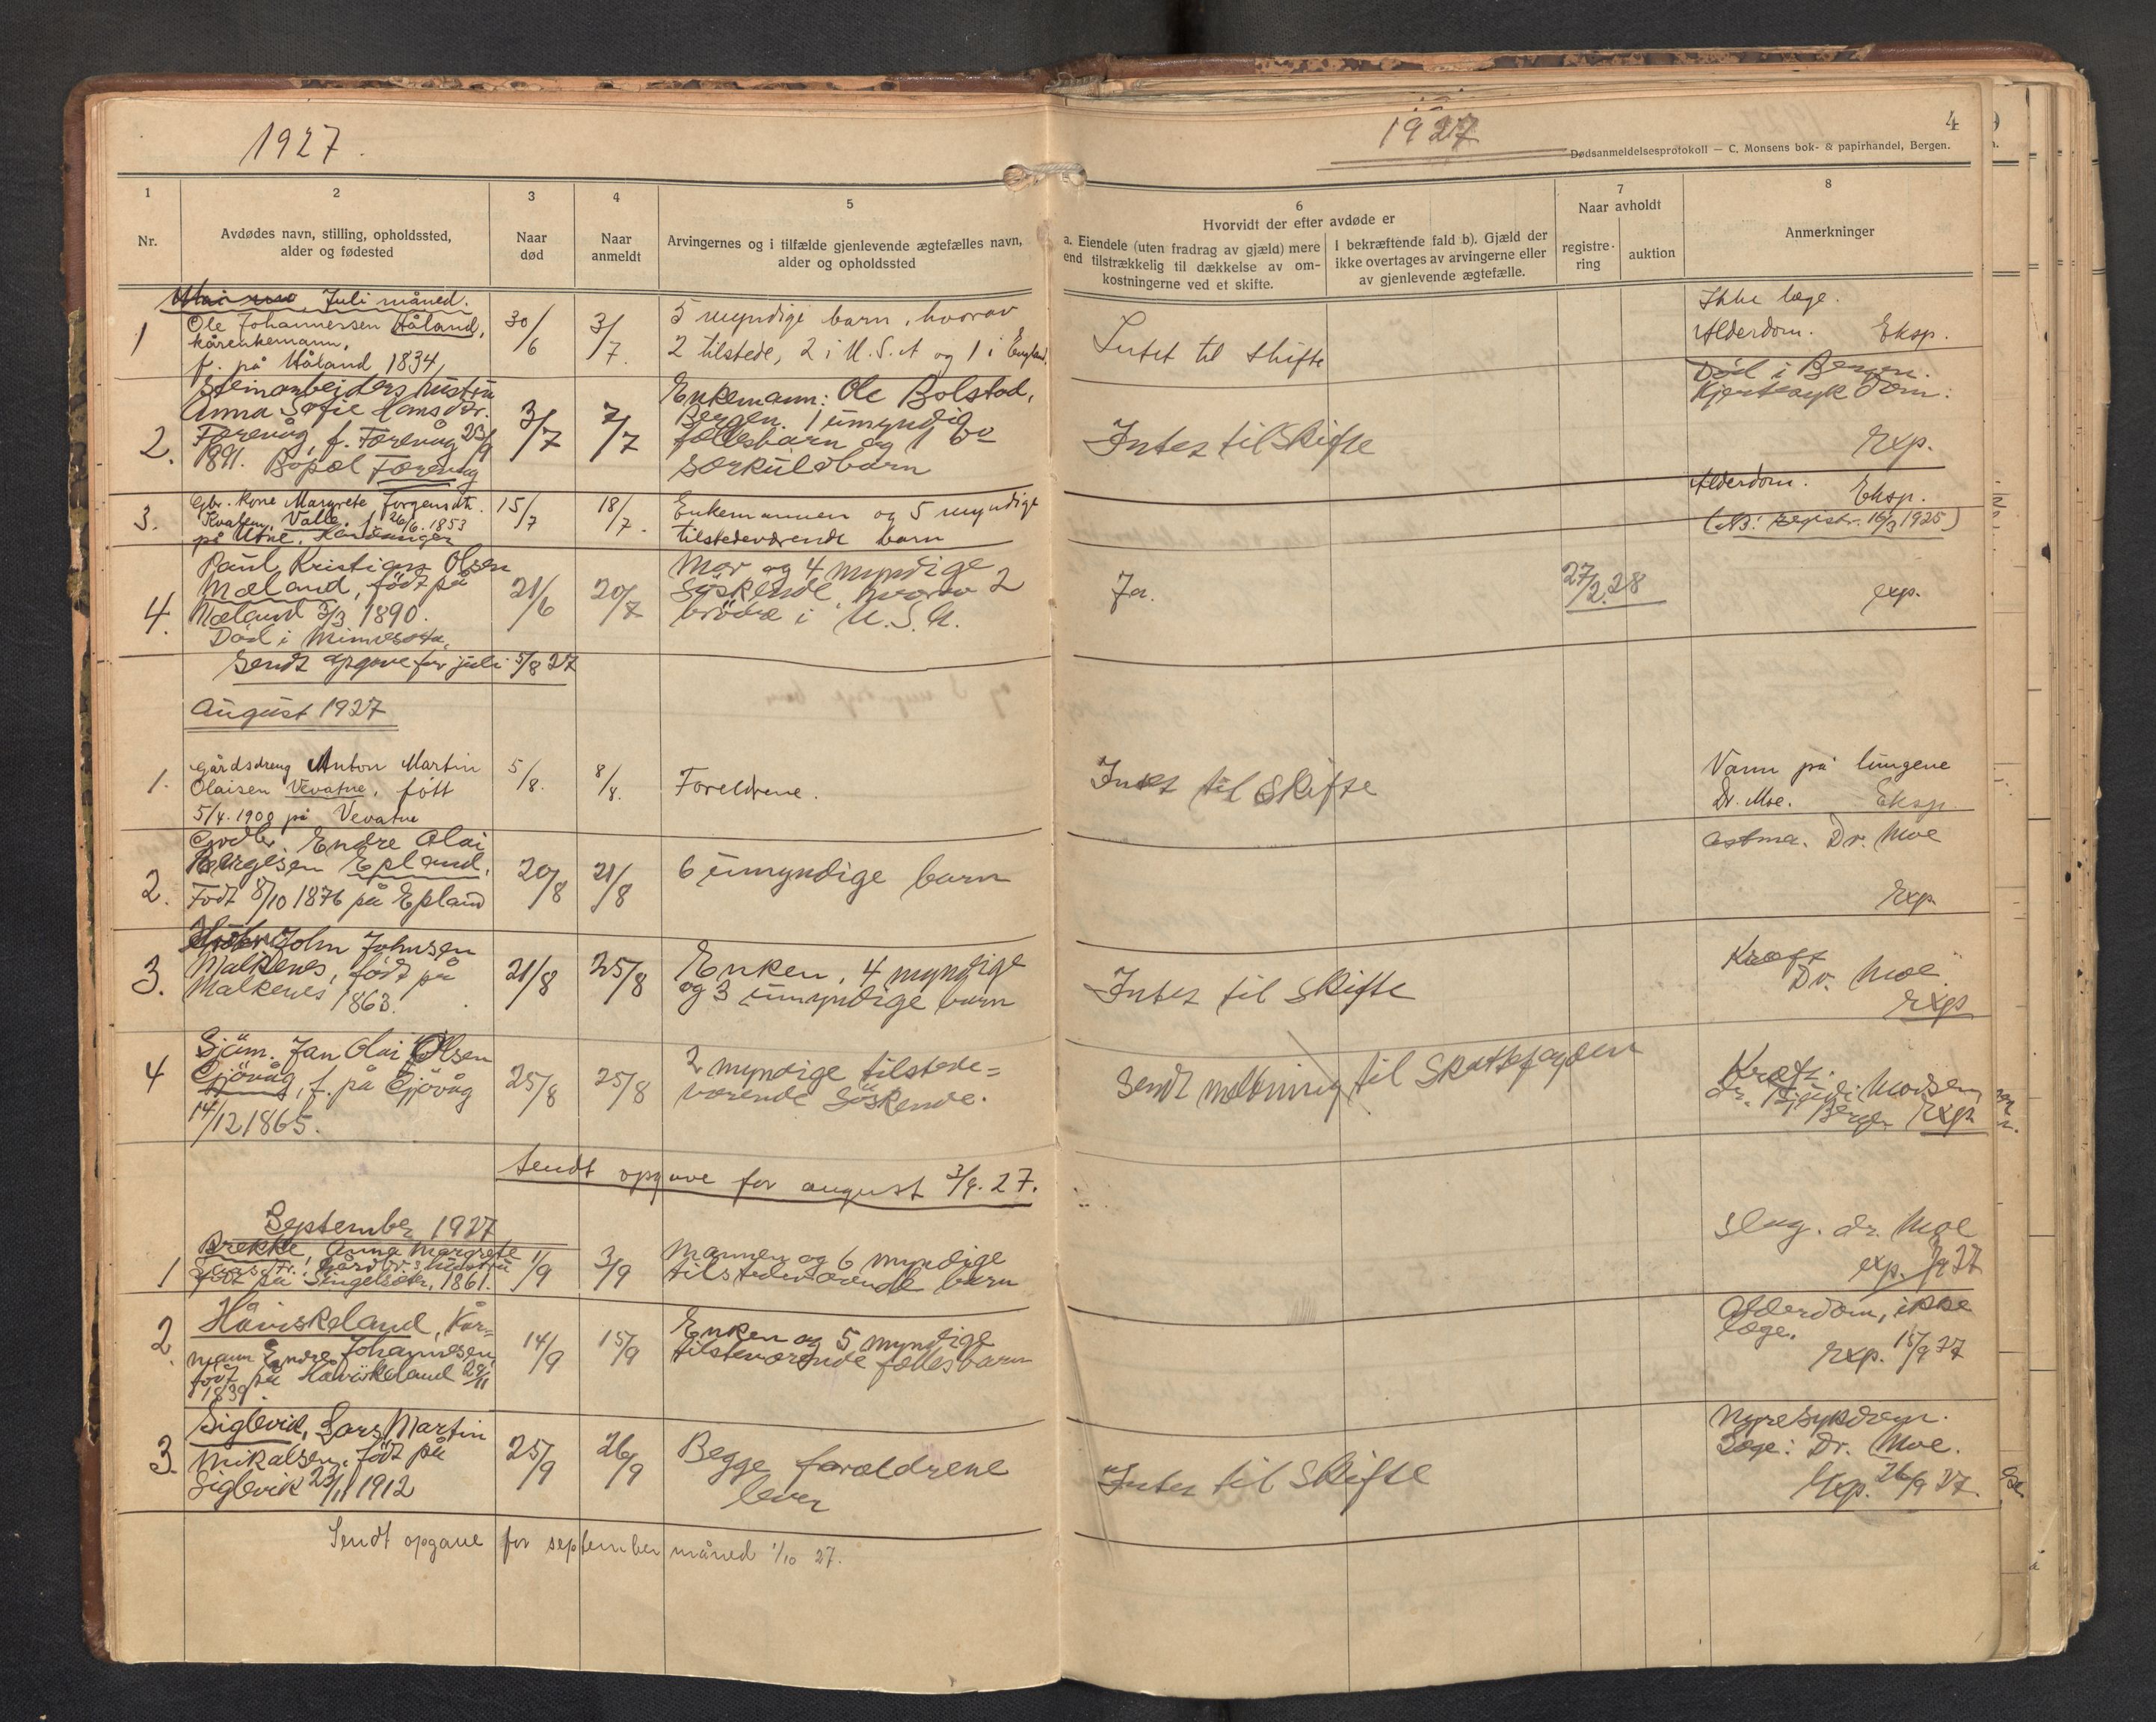 1927.
1927
4
Dødsanmeldelsesprotokoll — C. Monsens bok- & papirhandel, Bergen.
1
2
3
4
5
6
7
8
Nr.
Avdødes navn, stilling, opholdssted,
alder og fødested
Naar
død
Naar
anmeldt
Arvingernes og i tilfælde gjenlevende ægtefælles navn,
alder og opholdssted
Hvorvidt der efter avdøde er
a. Eiendele (uten fradrag av gjæld) mere
end tilstrækkelig til dækkelse av om-
kostningerne ved et skifte.
I bekræftende fald b). Gjæld der
ikke overtages av arvingerne eller
av gjenlevende ægtefælle.
Naar avholdt
registre-
ring
auktion
Anmerkninger
Juli måned.
1
Ole Johannessen Håland,
kårenkemann,
f. på Håland 1834,
30/6
3/7.
5 myndige barn, hvorav
2 tilstede, 2 i U.S.A og 1 i England.
Intet til skifte
Ikke læge.
Alderdom. Eksp.
2.
Steinarbeiders hustru
Anna Sofie Hansdtr.
Færevåg, f. Færevåg 23/9
1891. Bopæl Færevåg
3/7
7/7
Enkemann: Ole Bolstad,
Bergen. 1 umyndig
fellesbarn og 1 do
særkulsbarn
Intet til skifte
Død i Bergen.
Hjertesykdom.
Exp.
3.
Gbr. kone Margrete Jorgensdtr.
Kvalem, Valle, f. 26/6. 1853
på Utne, Hardanger
15/7
18/7.
Enkemannen og 5 myndige
tilstedeværende barn
Alderdom. Eksp.
(NB! Registr. 16/3 1925)
4.
Paul Kristian Olsen
Mæland, født på
Mæland 3/3 1890.
Død i Minnesota.
21/6
20/7
Mor og 4 myndige
søskende, hvorav 2
brødre i U.S.A.
Ja.
27/2.28
exp.
Sendt opgave for juli 5/8 27
August 1927
1.
Gårdsdreng Anton Martin
Olaisen Vevatne, født
5/4. 1908 på Vevatne
5/8.
8/8.
Foreldrene.
Intet til skifte
Vann på lungene
Dr. Moe. Eksp.
2.
Endre Olai
Børgesen Epland,
Født 8/10 1876 på Epland
20/8
21/8
6 umyndige barn
Astma. Dr. Moe
Exp
3.
John Johnsen
Malkenes, født på
Malkenes 1863.
21/8
25/8
Enken, 4 myndige
og 3 umyndige barn
Intet til skifte
Kræft
Dr. Moe
Exp
4
Sjöm. Jan Olai Olsen
Gjövåg, f. på Gjövåg
14/12 1865.
25/8
25/8
2 myndige tilstede=
værende søskende.
Sendt melding til skattefogden
Kræft.
Bergen Exp
Sendt opgave for august 3/9. 27.
September 1927
1
Brekke, Anna Margrete
født på Singelsæter, 1861.
1/9
3/9
Mannen og 6 myndige
tilstedeværende barn
Slag. dr. Moe
exp. 3/9 27
2.
Håviskeland, Kår=
mann Endre Johannesen,
født på Håviskeland 28/11
1839.
14/9
15/9
Enken og 5 myndige
tilsteværende fællesbarn
Alderdom, ikke
læge.
Exp. 15/9 27
3.
Siglevik, Lars Martin
Mikalsen, født på
Siglevik 23/11 1912
25/9
26/9
Begge forældrene
lever
Intet til skifte
Nyresykdom.
Læge: Dr. Moe.
Exp. 26/9 27.
Sendt opgave for september måned 1/10 27.